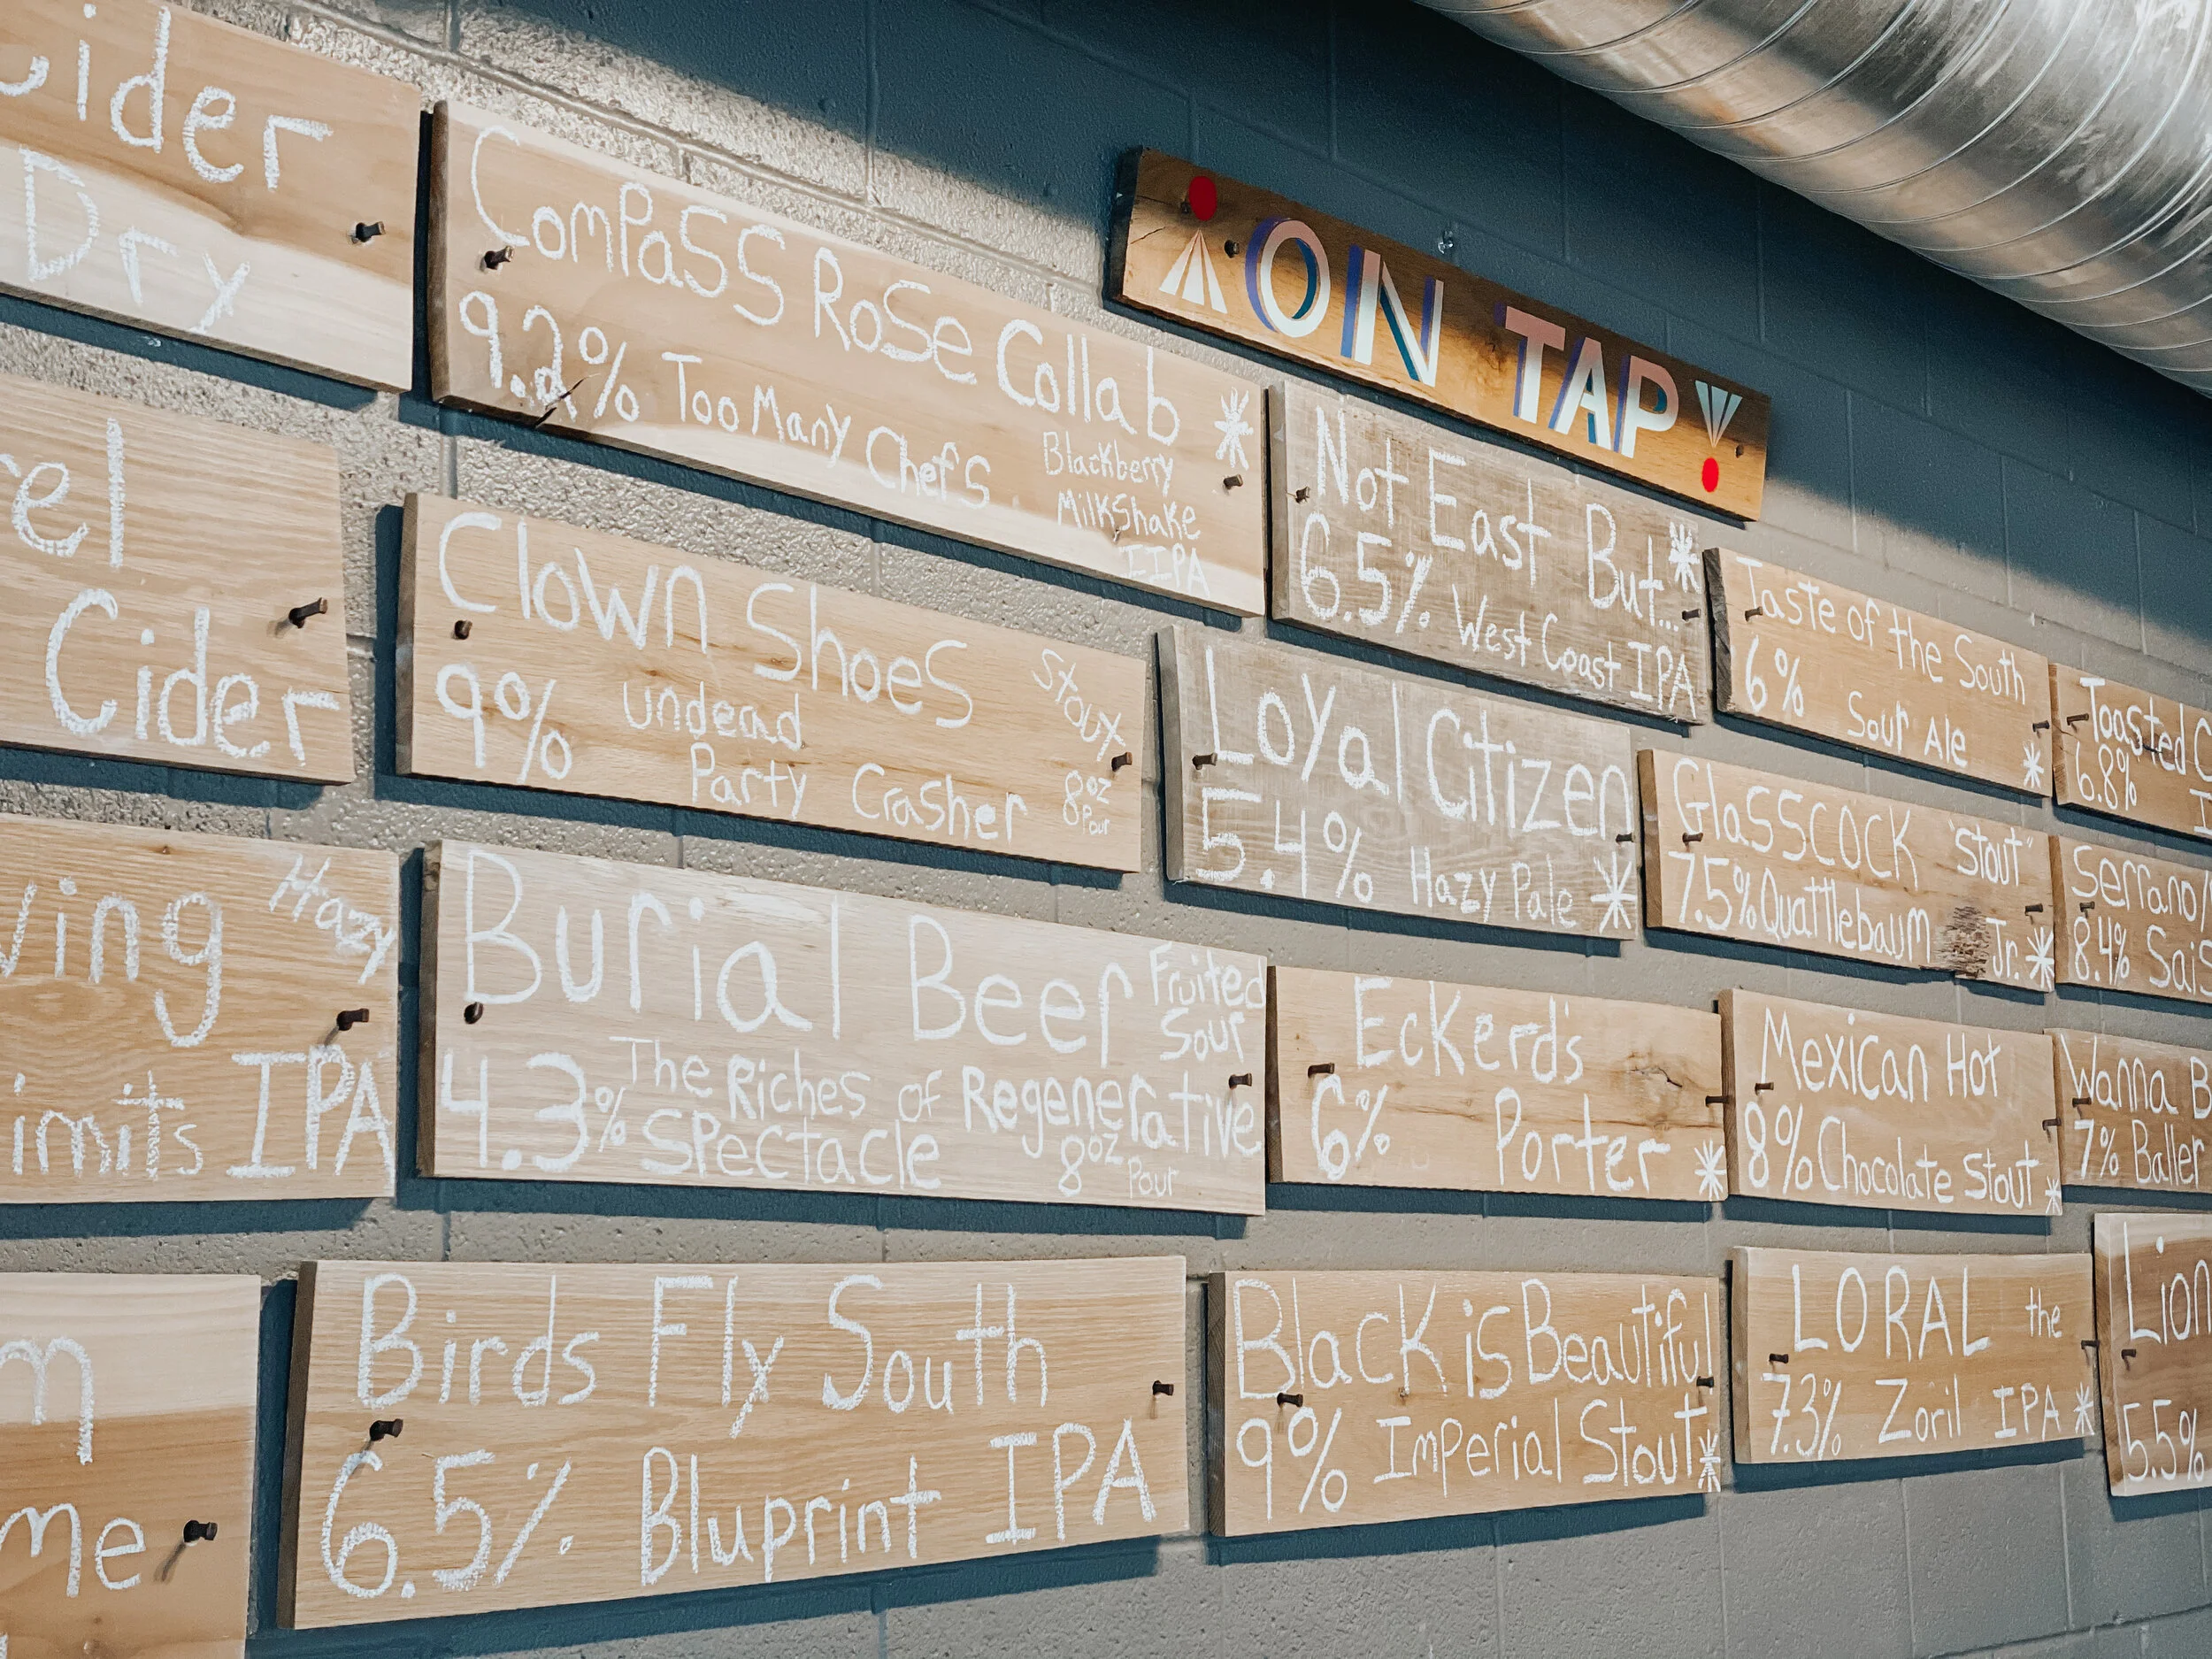 ON TAP
ider
Dry
Compass Rose Collab
9.2% Too Many Chefs
Blackberry
Milkshake
IIPA
Not East But...
6.5% West Coast IPA
Taste of the South
6% Sour Ale
Toasted
6.8%
el
Cider
Clown Shoes
Stout
9% undead
Party Crasher
8oz
Pour
Loyal Citizen
5.4% Hazy Pale
Glasscock "Stout"
7.5% Quattlebaum Jr.
Serrano
8.4% Sais
ving
Hazy
imits IPA
Burial Beer
Fruited
Sour
4.3% The Riches of Regenerative
Spectacle
8oz
Pour
Eckerd's
6% Porter
Mexican Hot
8% Chocolate Stout
Wanna B
7% Baller
m
me
Birds Fly South
6.5% Bluprint IPA
Black is Beautiful
9% Imperial Stout
LORAL the
7.3% Zoril IPA
Lion
5.5%